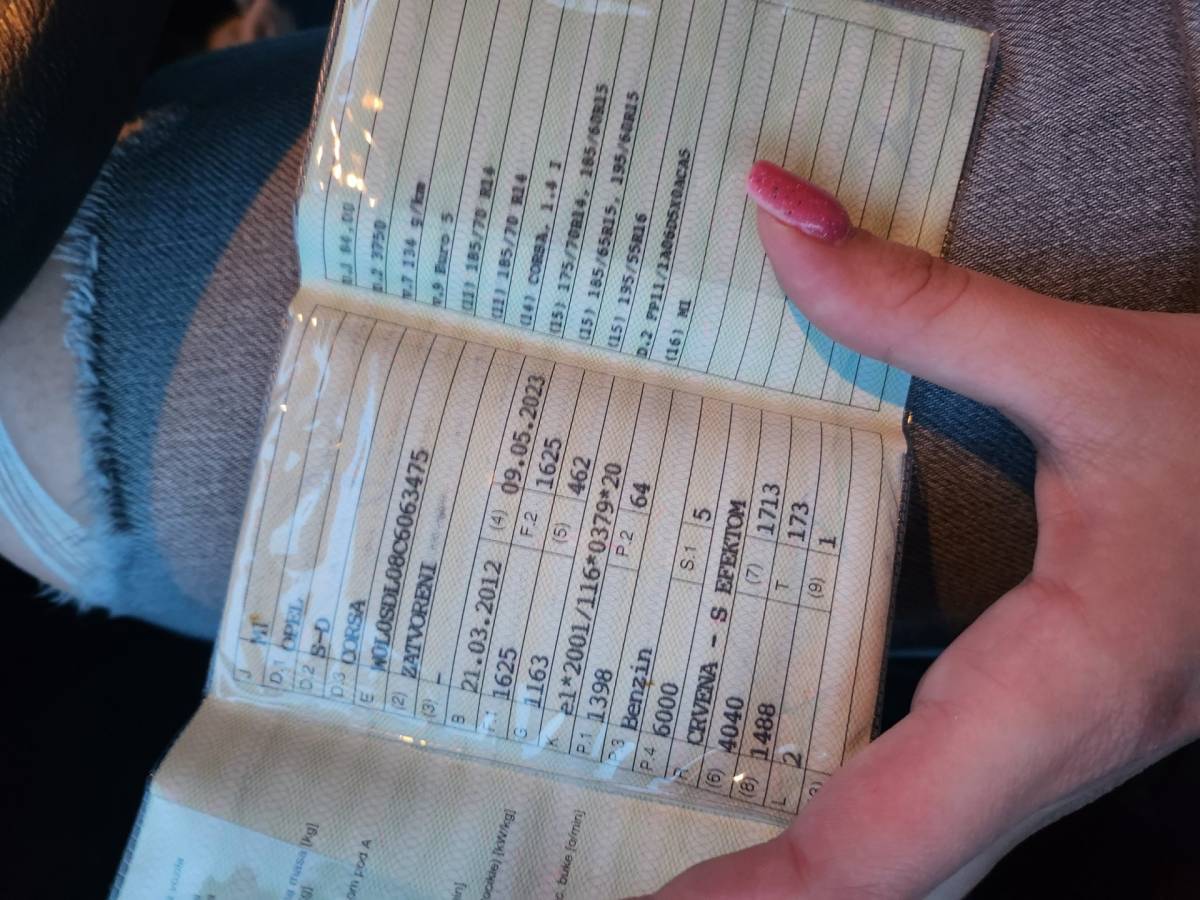 vozila
a masa [kg]
kg]
om pod A
in]
ocikle) [kW/kg]
c. buke [o/min]
J M1
D.1 OPEL
D.2 S-D
D.3 CORSA
E W0L0SDL08C6063475
(2) ZATVORENI
(3) -
B 21.03.2012 (4) 09.05.2023
F.1 1625 F.2 1625
G 1163 (5) 462
K e1*2001/116*0379*20
P.1 1398 P.2 64
P.3 Benzin
P.4 6000 S.1 5
R CRVENA - S EFEKTOM
(6) 4040 (7) 1713
(8) 1488 T 173
L 2 (9) 1
U.1 84.00
U.2 3750
V.7 134 g/km
V.9 Euro 5
(11) 185/70 R14
(11) 185/70 R14
(14) CORSA, 1.4 I
(15) 175/70R14, 185/60R15
(15) 185/65R15, 195/60R15
(15) 195/55R16
D.2 PP11/1A06G5X0ACA5
(16) M1